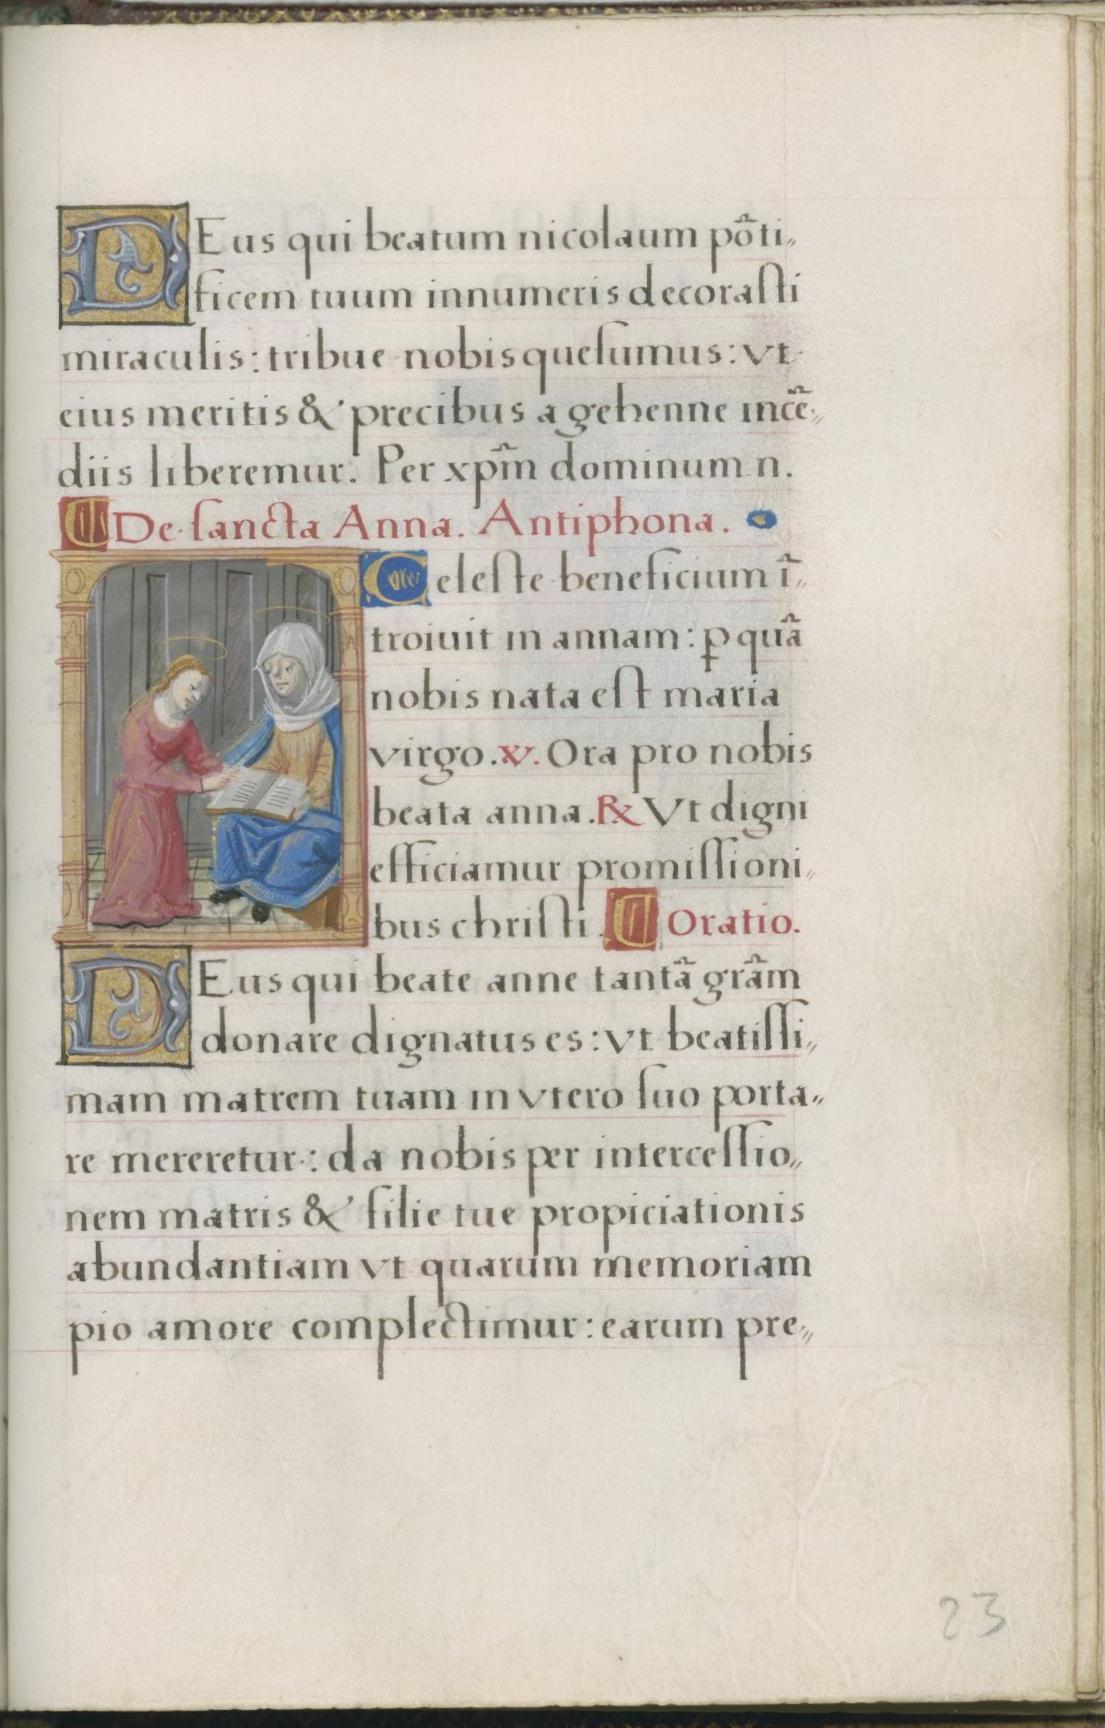 DEus qui beatum nicolaum põti„
ficem tuum innumeris decoraſti
miraculis: tribue nobis queſumus: vt
eius meritis & precibus a gehenne incẽ„
diis liberemur. Per xp̃m dominum n.
De ſancta Anna. Antiphona.
Celeſte beneficium ĩ„
troiuit in annam: ꝑ quã
nobis nata eſt maria
virgo. ℣. Ora pro nobis
beata anna. ℟ Vt digni
efficiamur promiſſioni„
bus chriſti. Oratio.
DEus qui beate anne tantã grãm
donare dignatus es: vt beatiſſi„
mam matrem tuam in vtero ſuo porta„
re mereretur: da nobis per interceſſio„
nem matris & filie tue propiciationis
abundantiam vt quarum memoriam
pio amore complectimur: earum pre„
23